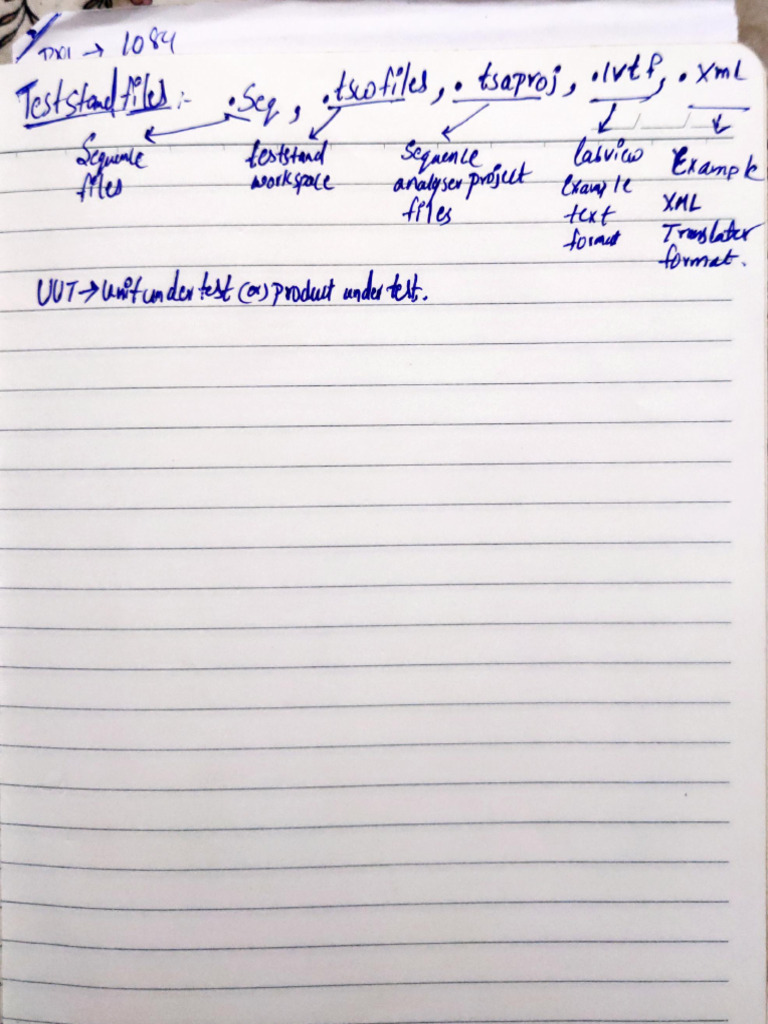 PXI → 1084
Teststand files :- .Seq, .tswfiles, .tsaproj, .lvtf, .XML
Sequence files
teststand workspace
Sequence analyser project files
Labview Example text format
Example XML Translater format.
UUT → Unit under test (or) product under test.